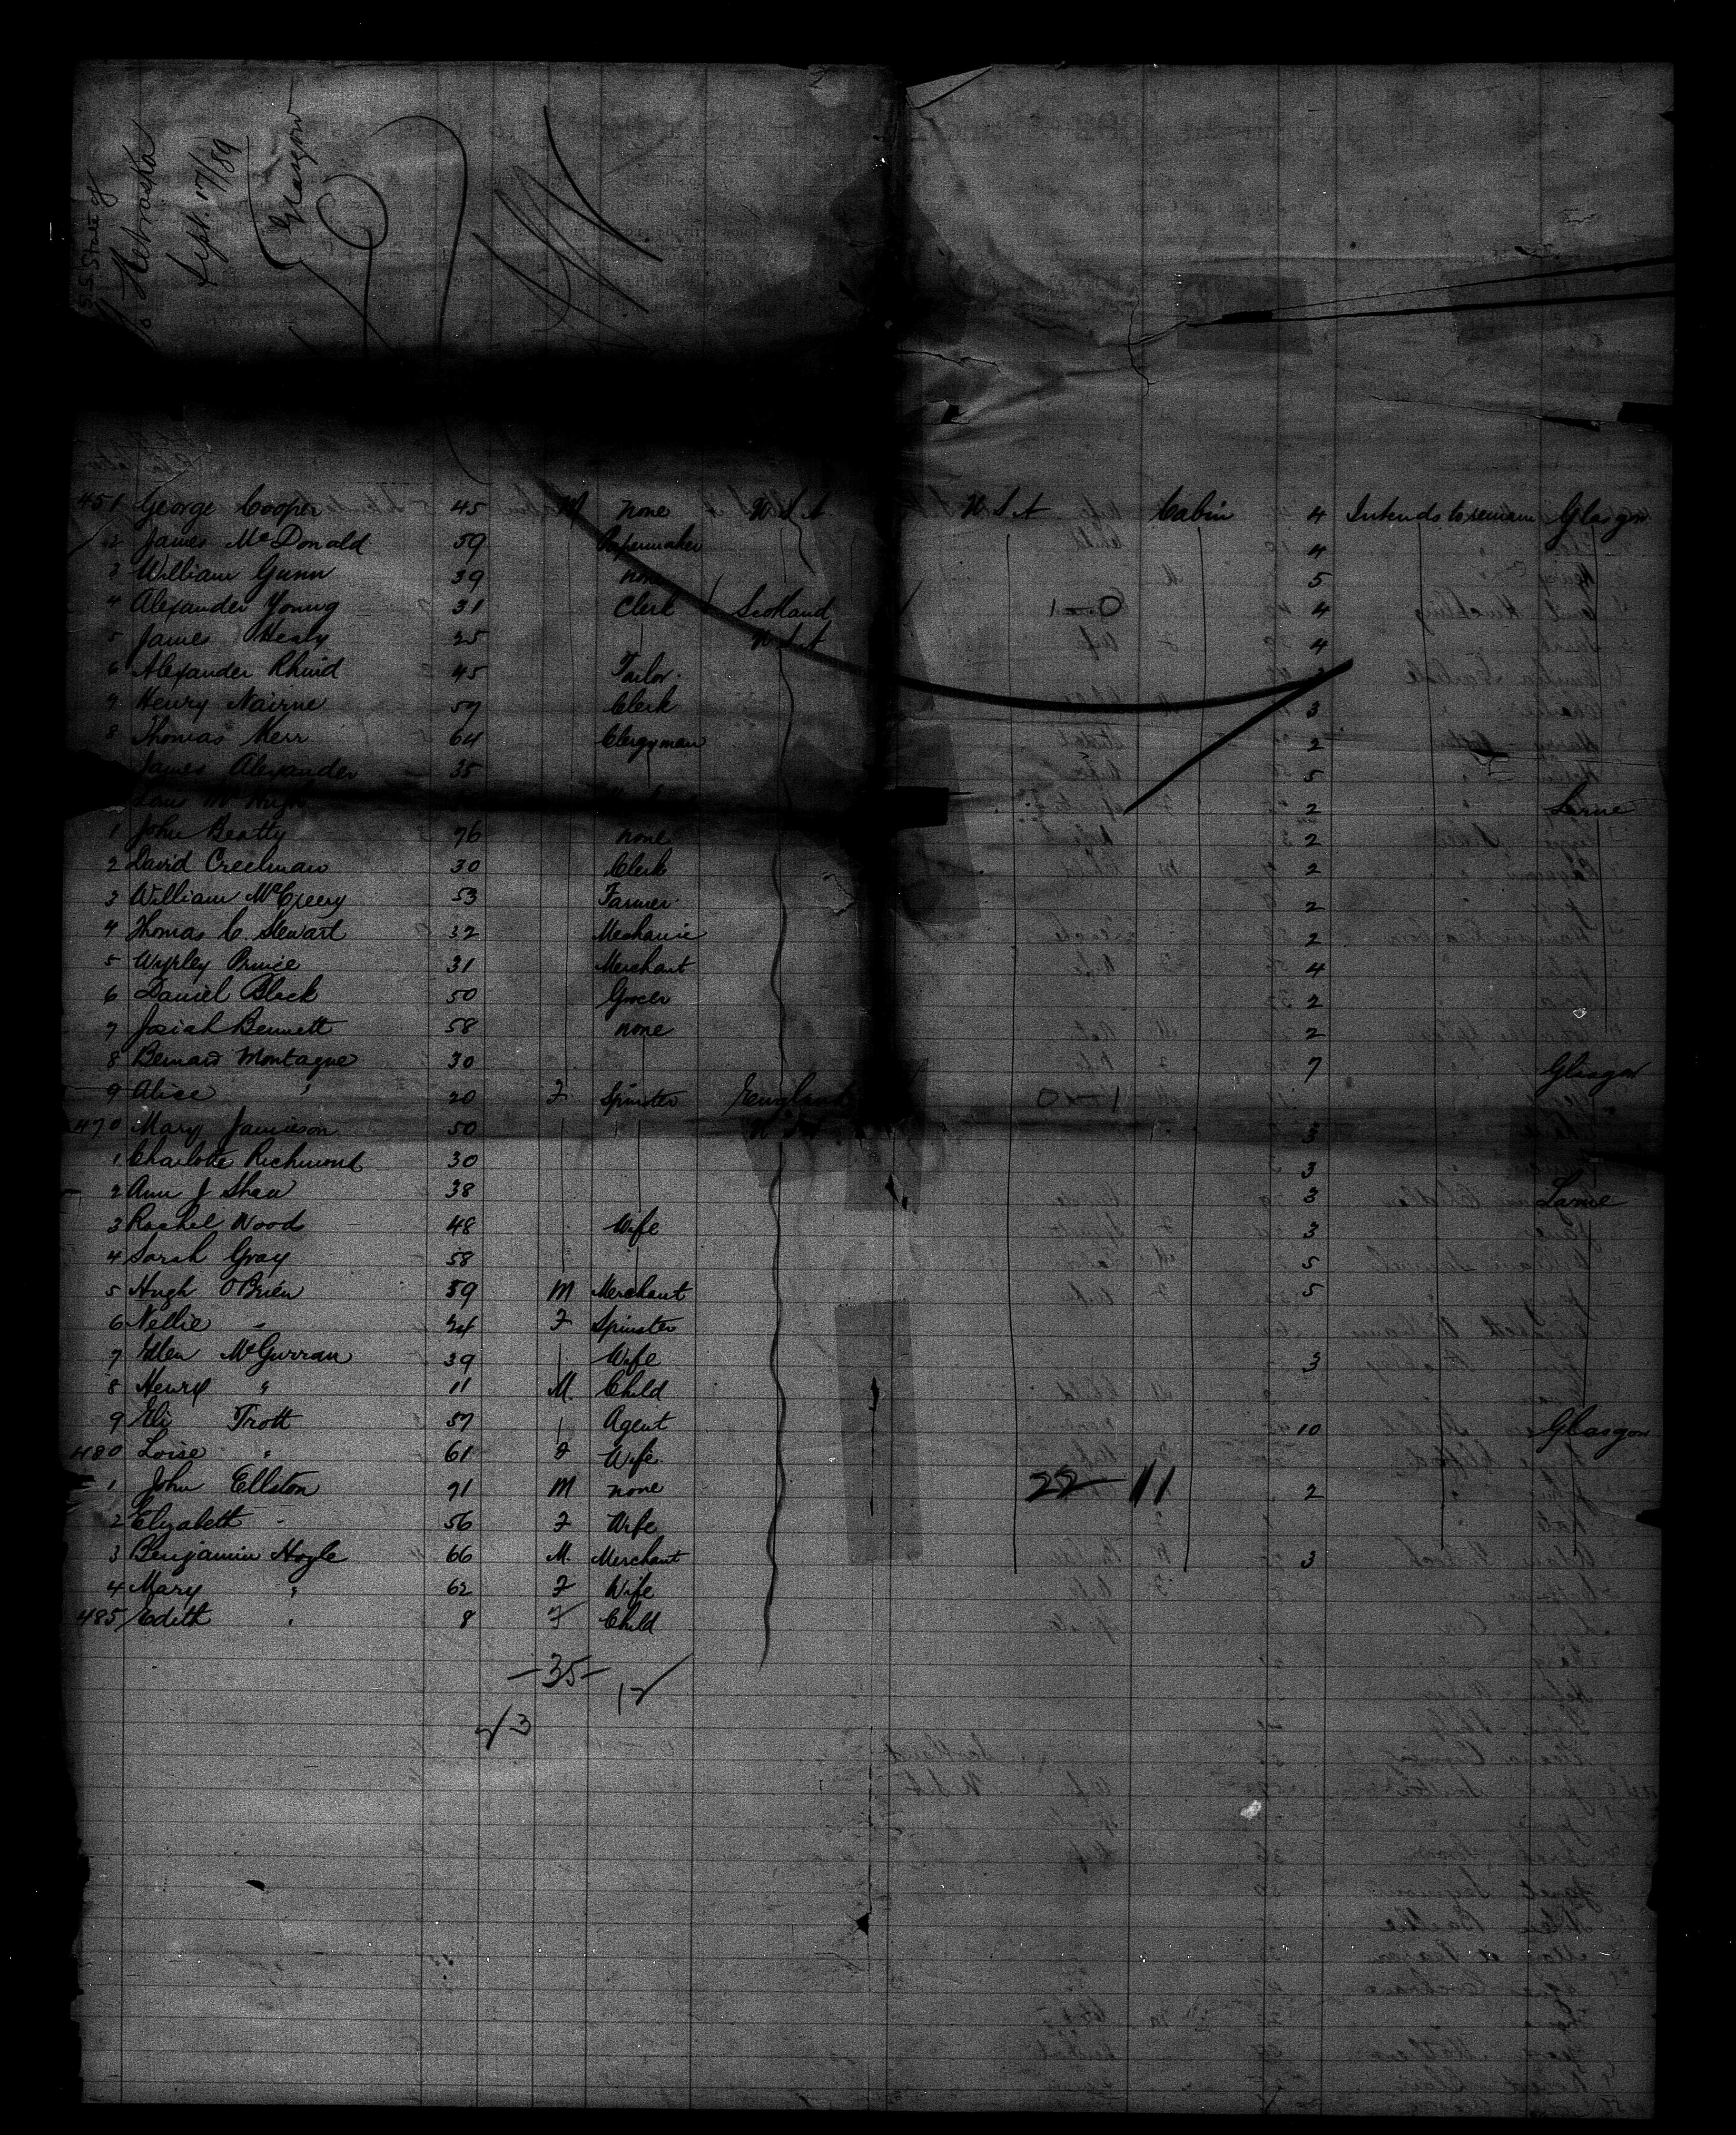 S.S. State of
Nebraska
Sept. 17/89
Glasgow
451 George Cooper 45 M none U.S.A. U.S.A Cabin 4 Intends to remain Glasgow
2 James McDonald 59 Papermaker 4
3 William Gunn 39 none 5
4 Alexander Young 31 Clerk Scotland 4
5 James Healy 25 U.S.A 4
6 Alexander Rhind 45 Tailor
7 Henry Nairne 57 Clerk 3
8 Thomas Kerr 64 Clergyman 2
James Alexander 35 5
McHugh 2 Larne
1 John Beatty 76 none 2
2 David Creelman 30 Clerk 2
3 William McCreery 53 Farmer 2
4 Thomas C Stewart 32 Mechanic 2
5 Wyrley Bruce 31 Merchant 4
6 Daniel Black 50 Grocer 2
7 Josiah Bennett 58 none 2
8 Bernard Montague 30 7 Glasgow
9 Alice " 20 F Spinster England
470 Mary Jamieson 50 U.S.A. 3
1 Charlotte Richmond 30 3
2 Ann J Shaw 38 3 Larne
3 Rachel Woods 48 Wife 3
4 Sarah Gray 58 5
5 Hugh O'Brien 59 M Merchant 5
6 Nellie " 24 F Spinster
7 Ellen McGurran 39 Wife 3
8 Henry " 11 M. Child
9 Eli Trott 57 Agent 10 Glasgow
480 Loise " 61 F Wife
1 John Ellston 71 M none 22 11 2
2 Elizabeth " 56 F Wife
3 Benjamin Hogle 66 M. Merchant 3
4 Mary " 62 F Wife
485 Edith " 8 F Child
-35-
12